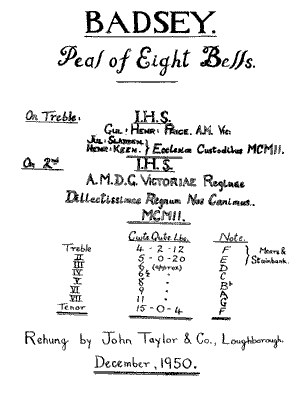 BADSEY.
Peal of Eight Bells.
On Treble: I.H.S.
Gul: Henr: Price. A.M. Vic:
Jul: Sladden.
Henr: Keen. } Ecclesiae Custodibus MCMII.
On 2nd I.H.S.
A.M.D.G. Victoriae Reginae
Dilectissimae Regnum Nos Canimus.
MCMII.
Cwts Qtrs Lbs. Note.
Treble 4 - 2 - 12 F } Mears &
II 5 - 0 - 20 E } Stainbank.
III 6 (approx) D
IV 6½ " C
V 8 " Bb
VI 9 " A
VII 11 " G
Tenor 15 - 0 - 4 F
Rehung by John Taylor & Co., Loughborough.
December, 1950.